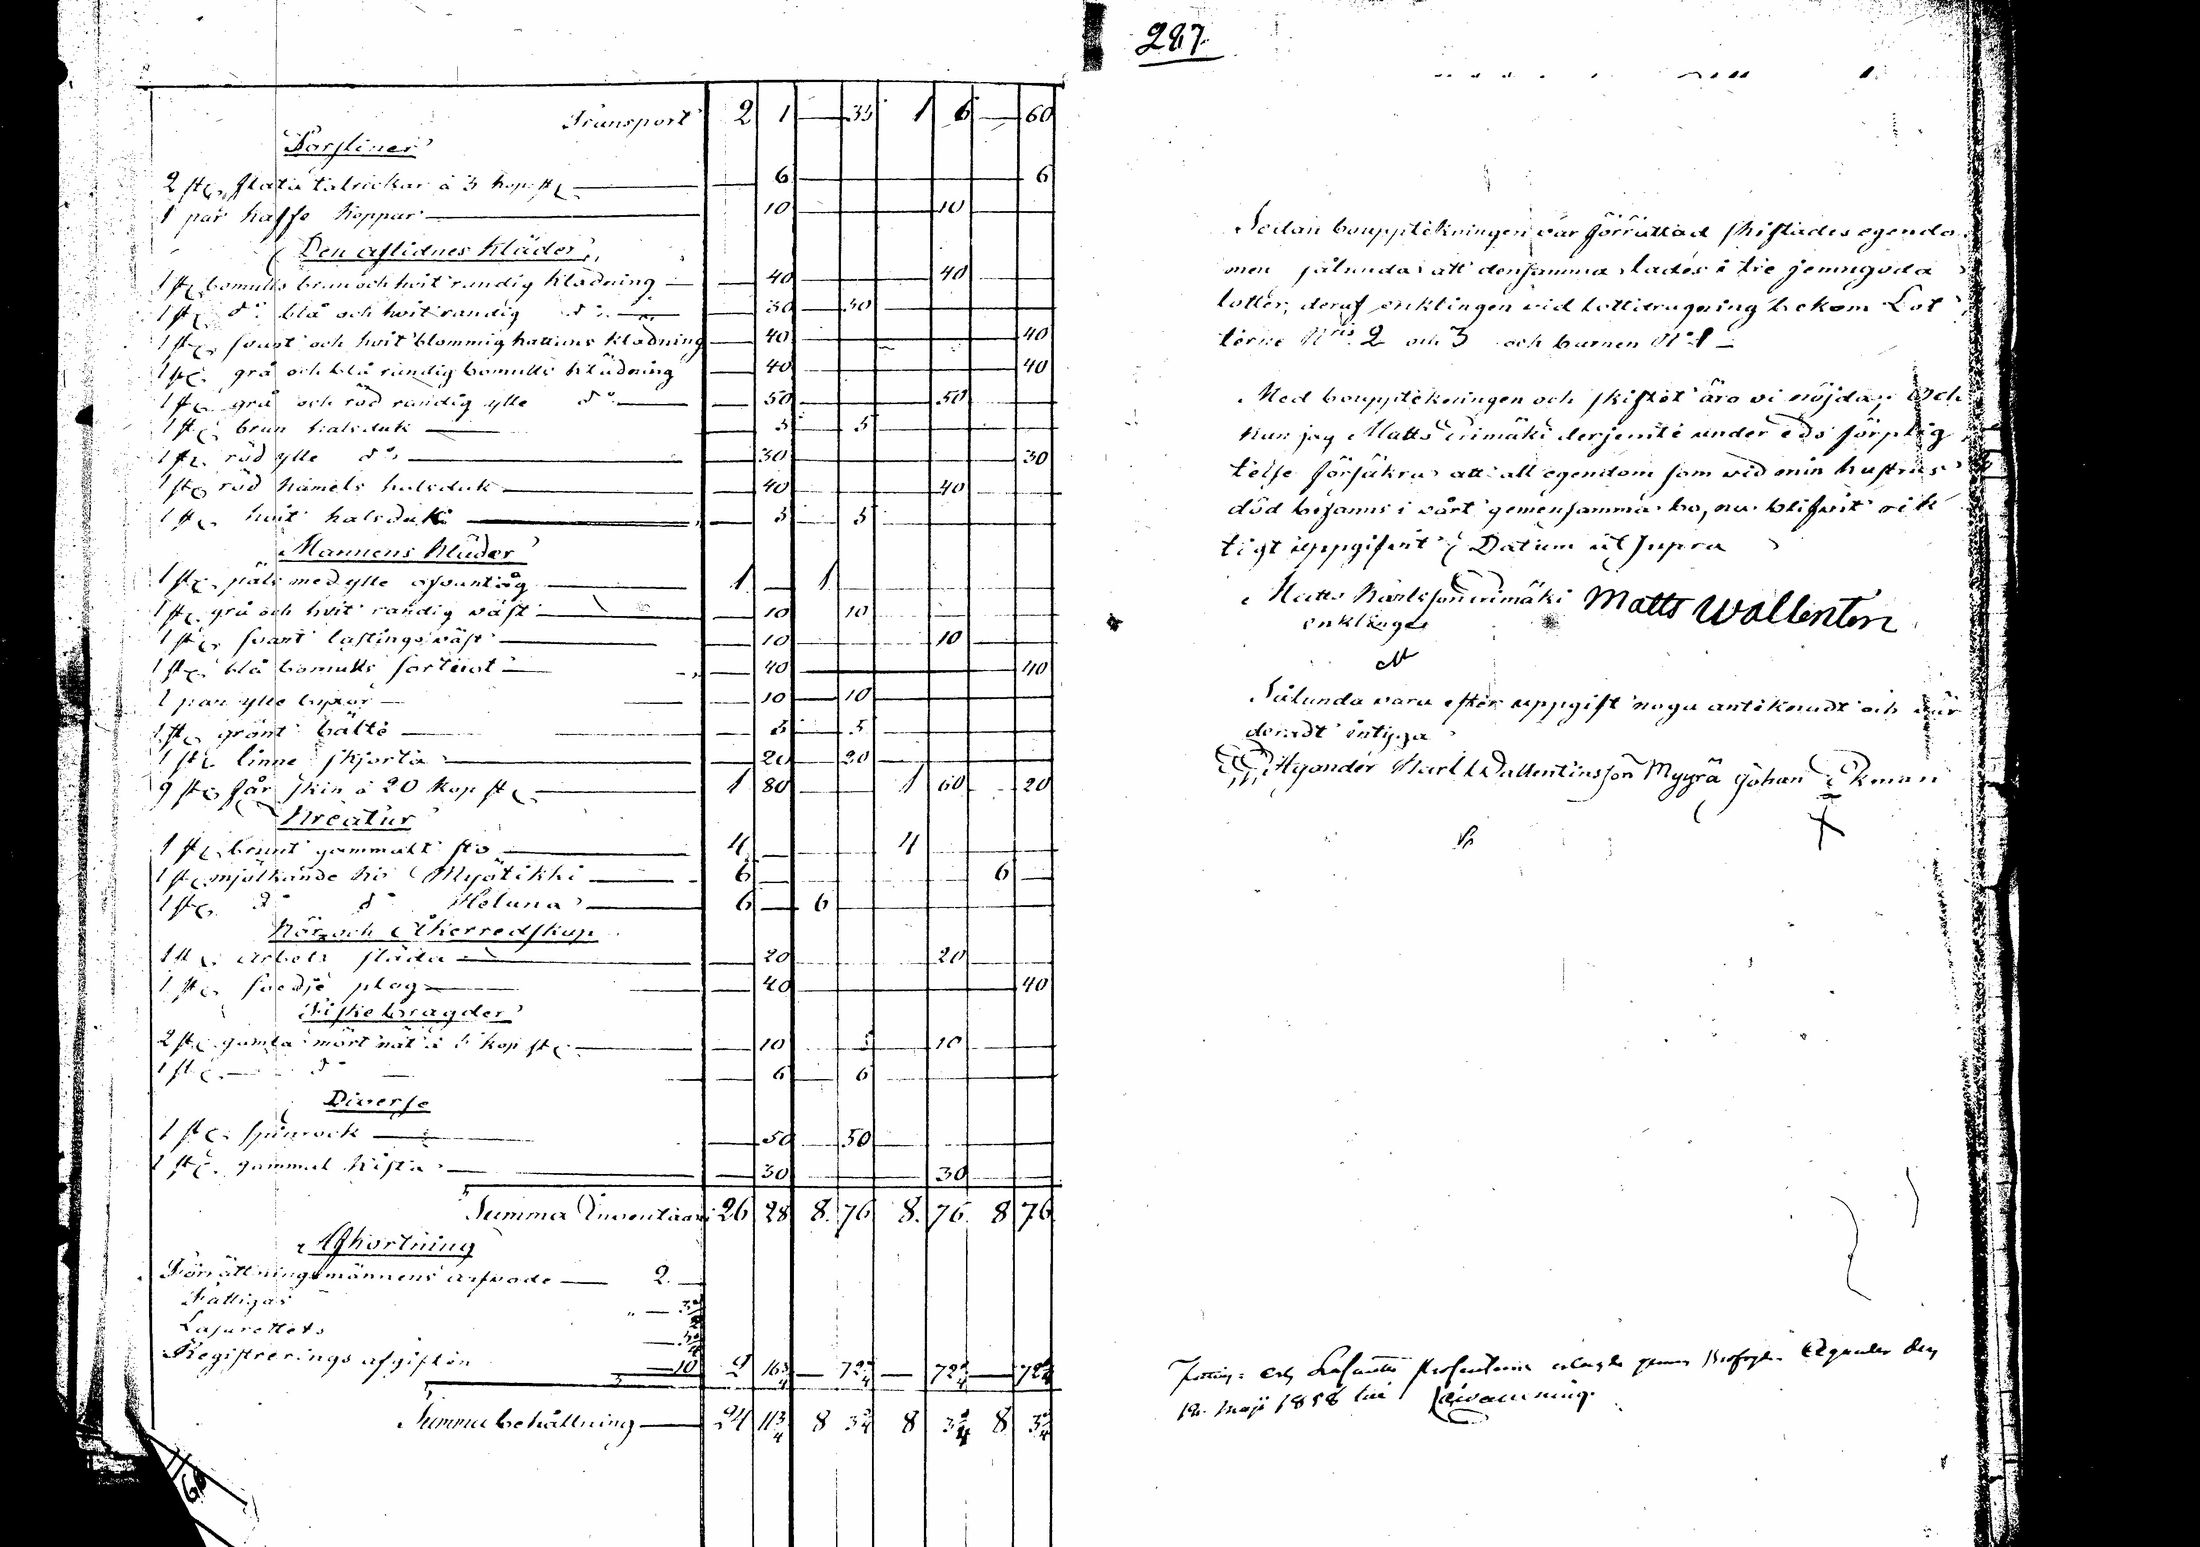 Transport 2 1 — 35 1 6 — 60
Porsliner
2 st. flata talrickar à 3 kop. st. — 6 — 6
1 par kaffe koppar — 10 — 10
Den aflidnes kläder
1 st. bomulls brun och hvit randig klädning — 40 — 40
1 st. do blå och hvit randig do — 30 30
1 st. svart och hvit blommig kattuns klädning — 40 — 40
1 st. grå och blå randig bomulls klädning — 40 — 40
1 st. grå och röd randig ylle do — 50 — 50
1 st. brun halsduk — 5 5
1 st. röd ylle do — 30 — 30
1 st. röd kamels halsduk — 40 — 40
1 st. hvit halsduk — 5 5
Mannens kläder
1 st. päls med ylle 1 — 1
1 st. grå och hvit randig väst — 10 10
1 st. svart lastings väst — 10 — 10
1 st. blå bomulls sortuot — 40 — 40
1 par ylle byxor — 10 10
1 st. grönt bälte — 5 5
1 st. linne skjorta — 20 20
9 st. får skin à 20 kop st. 1 80 — 1 60 — 20
Kreatur
1 st. brunt gammalt sto 4 — 4
1 st. mjölkande ko Myötikki 6 — 6 —
1 st. do do Heluna 6 — 6
Kör och Åkerredskap
1 st. arbets släda — 20 — 20
1 st. svedje plog — 40 — 40
Fiskebragder
2 st. gamla mört nät à 5 kop st. — 10 — 10
1 st. — do — 6 6
Diverse
1 st. spinrock — 50 50
1 st. gammal kista — 30 — 30
Summa Inventarii 26 28 8. 76 8. 76 8 76
Afkortning
Förrättningsmännens arfvode — 2 —
Fattigas
Lasarettets
Registrerings afgiften — 10 2 16 3/4 — 72 1/4 — 72 1/4 — 72 1/4
Summa behållning — 24 11 3/4 8 3 3/4 8 3 3/4 8 3 3/4
287.
Sedan bouppteckningen var förrättad skiftades egendo
men sålunda att densamma lades i tre jemngoda
lotter, deraf enklingen vid lottdragning bekom Lot
terne Nris 2 och 3 och barnen No 1
Med bouppteckningen och skiftet äro vi nöjda, och
kan jag Matts derjemte under eds förplig
telse försäkra att all egendom som vid min hustrus
död befanns i vårt gemensamma bo, nu blifvit rik
tigt uppgifvit, Datum ut Supra
Matts Karlsson Matts Wallenten
enklinge
Sålunda vara efter uppgift noga antecknadt och vär
deradt intyga
Karl Wallentinsson Myyrä Johan Ekman
den
12 Maji 1858